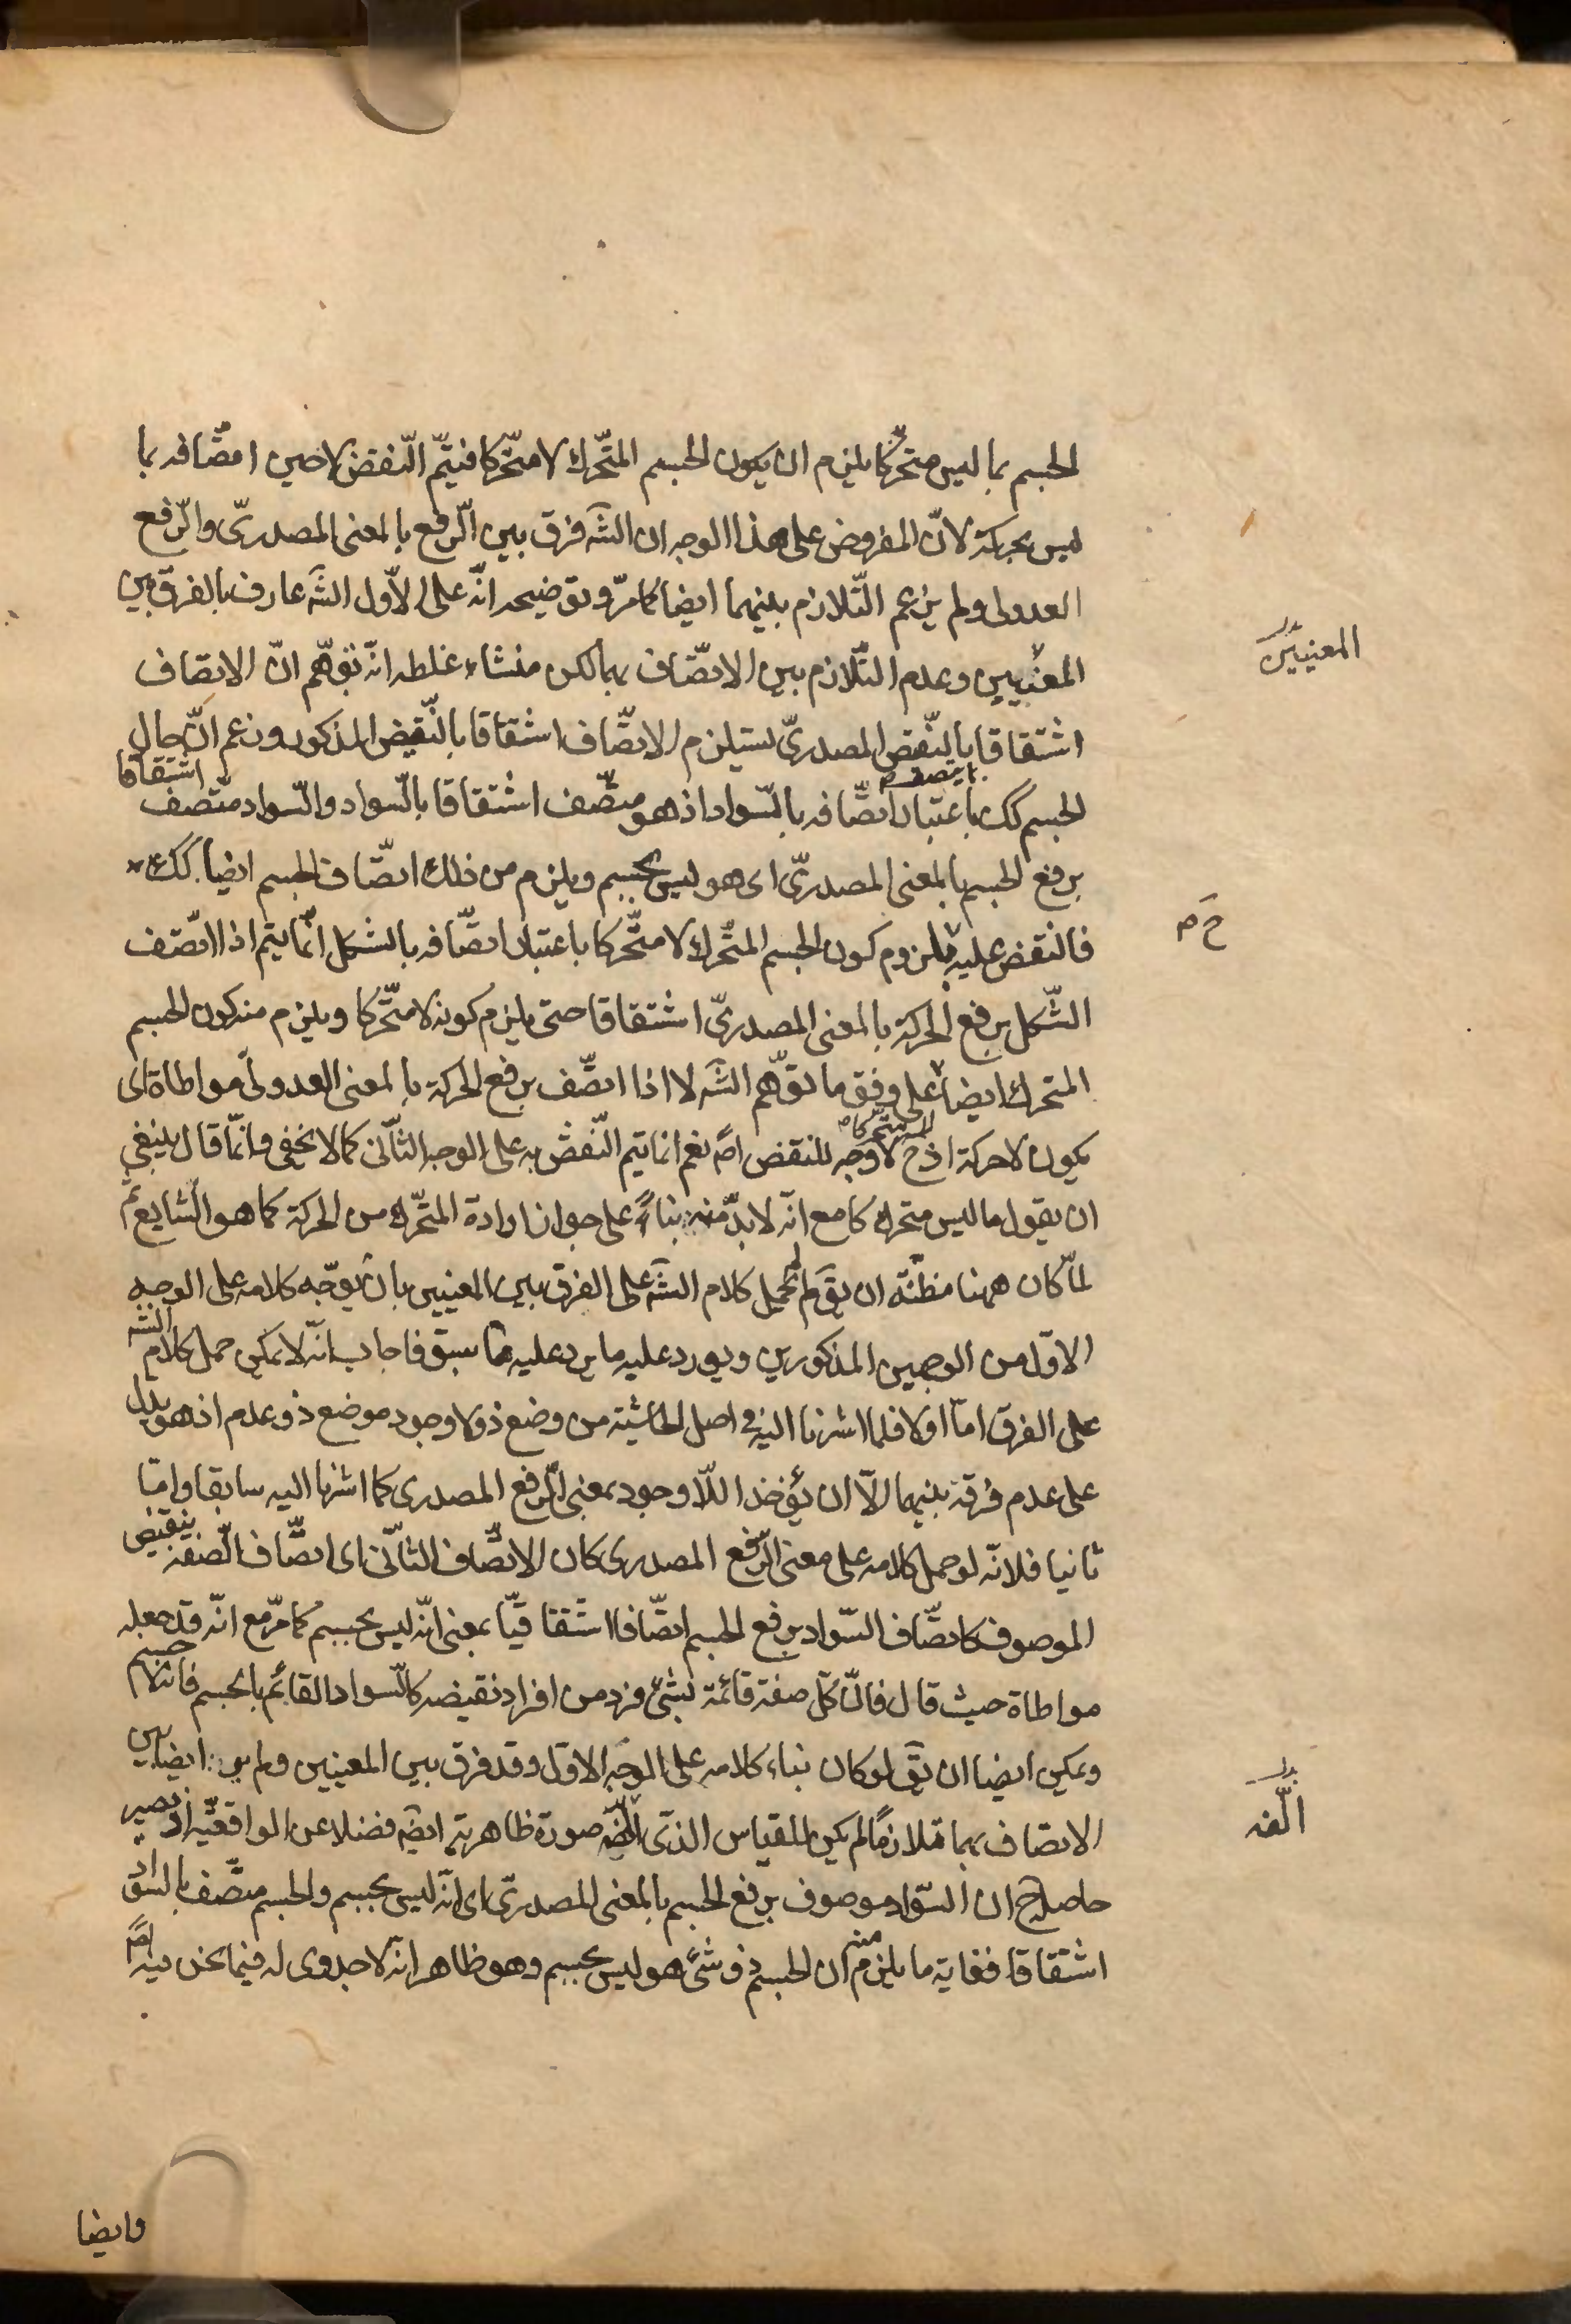 الجسم بما ليس متحركا يلزم ان يكون الجسم المتحّرك لا متحّركا فيتمّ النّقض لا حين اتصّافه بما
ليس بحركة لانّ المفروض على هذا الوجه ان الشّه فرق بين الرّفع بالمعنى المصدرىّ والرّفع
العدولى ولم يزعم التّلازم بينهما ايضا كما مرّ وتوضيحه انّه على الاوّل الشّه عارف بالفرق بين
المعنيين وعدم التّلازم بين الاتصّاف بهما لكن منشاء غلطه انّه توهّم انّ الاتصاف
اشتقاقا بالنّقض المصدرىّ يستلزم الاتصّاف اشتقاقا بالنّقيض المذكور وزعم انّ حال
الجسم كك باعتبار اتصّافه بالسّواد اذ هو متصّف اشتقاقا بالسّواد والسّواد متّصف اشتقاقا
برفع الجسم بالمعنى المصدرىّ اى هو ليس بجسم ويلزم من ذلك اتصّاف الجسم ايضا كك
فالنقض عليه بلزوم كون الجسم المتحّرك لا متحّركا باعتبار اتصّافه بالشكل انّما يتم اذا اتصّف
الشّكل برفع الحركة بالمعنى المصدرىّ اشتقاقا حتى يلزم كونه لا متحّركا ويلزم منه كون الجسم
المتحرك ايضا على وفق ما توّهم الشّه لا اذا اتصّف برفع الحركة بالمعنى العدولىّ مواطاة اى
يكون لا حركة اذ ح لا وجه للنقض اصّ نعم انما يتم النّقض به على الوجه الثّانى كما لا يخفى وانّما قال ينبغى
ان يقول ما ليس متحركا مع انّه لا بدّ منه بناءً على جواز ارادة المتحّرك من الحركة كما هو الشّايع ثم
لمّا كان ههنا مظنّة ان يقّ لم لم يحمل كلام الشّه على الفرق بين المعنيين بان يوّجه كلامه على الوجه
الاوّل من الوجهين المذكورين ويورد عليه ما يرد عليه مما سبق فاجاب انّه لا يمكن حمل كلام الشّه
على الفرق امّا اولا فلما اشرنا اليه فى اصل الحاشية من وضع ذو لا وجود موضع ذو عدم اذ هو يدل
على عدم فرقه بينهما الاّ ان يؤخذ اللّا وجود بمعنى الرّفع المصدرى كما اشرنا اليه سابقا وامّا
ثانيا فلانّه لو حمل كلامه على معنى الرّفع المصدرى كان الاتصّاف الثّانى اى اتصّاف الصّفة بنقيض
الموصوف كاتصّاف السّواد برفع الجسم اتصّافا اشتقاقيّا بمعنى انّه ليس بجسم كما مرّ مع انّه قد جعله
مواطاة حيث قال فانّ كلّ صفة قائمة بشئ فرد من افراد نقيضه كالسّواد القائم بالجسم فانه لا جسم
ويمكن ايضا ان يقّ لو كان بناء كلامه على الوجه الاوّل وقد فرق بين المعنيين ولم ير ايضا بين
الاتصاف بهما تلازمًا لم يكن للقياس الذى الّفه صورة ظاهرية ايضّ فضلا عن الواقعّية اذ يصير
حاصله ح ان السّواد موصوف برفع الجسم بالمعنى المصدرىّ اى انّه ليس بجسم والجسم متصّف بالسّواد
اشتقاقا فغاية ما يلزم منه ان الجسم ذو شئ هو ليس بجسم وهو ظاهر انّه لا جدوى له فيما نحن فيه اصّ
المعنيين
ح م
الّفه
وايضا